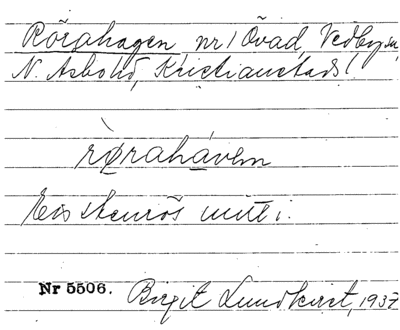 Rörahagen, nr 1 Övad, Vedby sn,
N. Åsbohd, Kristianstads l.
rørahávɘn
stenrös mitt i.
Nr 5506. Birgit Lundkvist, 1937